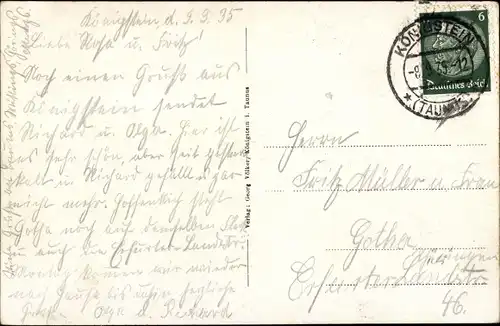 Königstein, d. 9.9.35
Liebe Rosa u. Fritz!
Noch einen Gruß aus
Königstein sendet
Richard u. Olga. Hier ist
es sehr schön, aber seit
Richard gefällt es gar
nicht mehr. Hoffentlich steht
Gotha noch auf demselben
u. auch die Erfurter Landstr.
Montag kommen wir wieder
nach Hause bis dahin herzliche
Grüße Olga u. Richard
Verlag: Georg Völker, Königstein i. Taunus
KÖNIGSTEIN
(TAUNUS)
6
Deutsches Reich
Herrn
Fritz Müller u. Frau
Gotha
Thüringen
Erfurterlandstr
46.